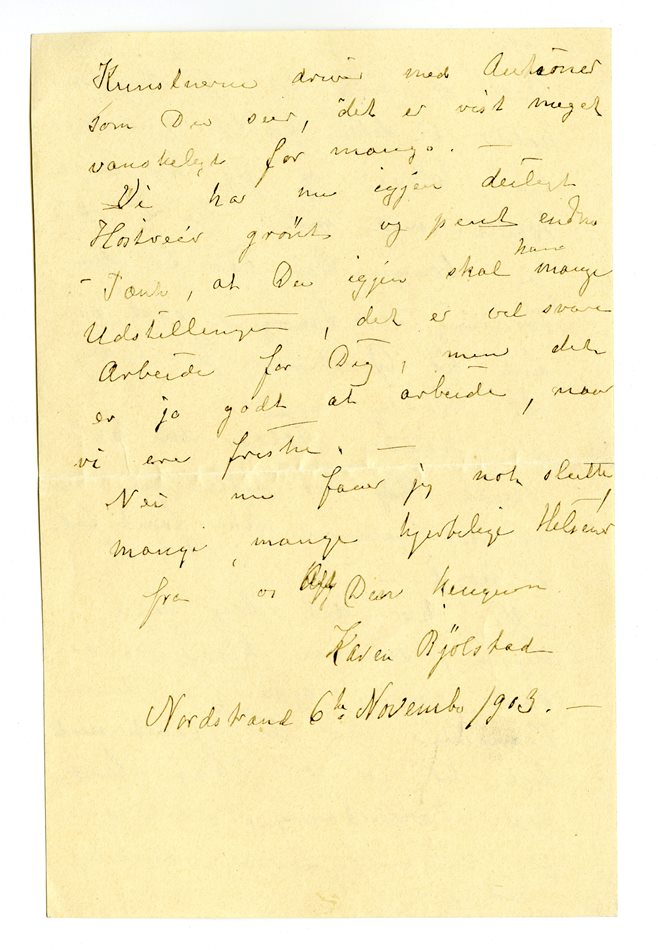 Kunstnerne driver med Autioner
som Du seer, det er vist meget
vanskeligt for mange. —
Vi har nu igjen deiligt
Høstveir grönt og pent endnu
— Tænk, at Du igjen skal have mange
Udstillinger, det er vel svare
Arbeide for Dig, men det
er jo godt at arbeide, naar
vi ere friske. —
Nei nu faaer jeg nok slutte,
mange, mange hjertelige Hilsener
fra os Alle Din hengivne
Karen Bjölstad
Nordstrand 6te November 1903. —